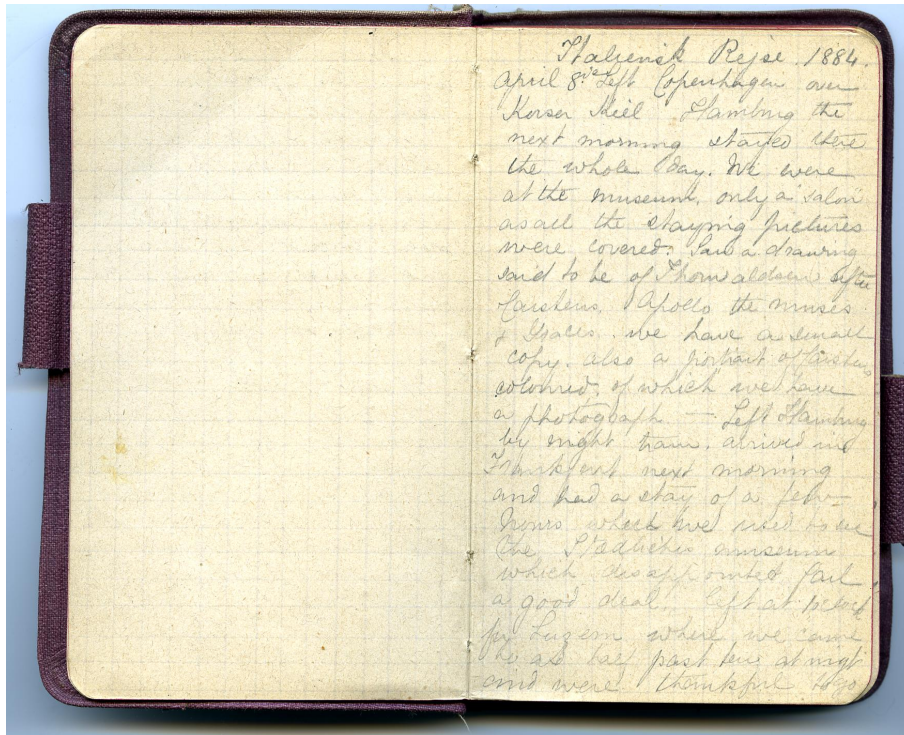 Italiensk Rejse. 1884.
April 8de Left Copenhagen over
Korsør Kiel Hamburg the
next morning stayed there
the whole day. We were
at the museum, only a "salon"
as all the staying pictures
were covered. Saw a drawing
said to be of Thorwaldsen after
Carstens. Apollo the muses
& Graces. we have a small
copy. also a portrait of Carstens
coloured, of which we have
a photograph — Left Hamburg
by night train. arrived in
Frankfurt next morning
and had a stay of a few
hours which we used to see
the museum
which disappointed
a good deal. left at
for Luzern where we came
to at half past at night
and were thankful to go